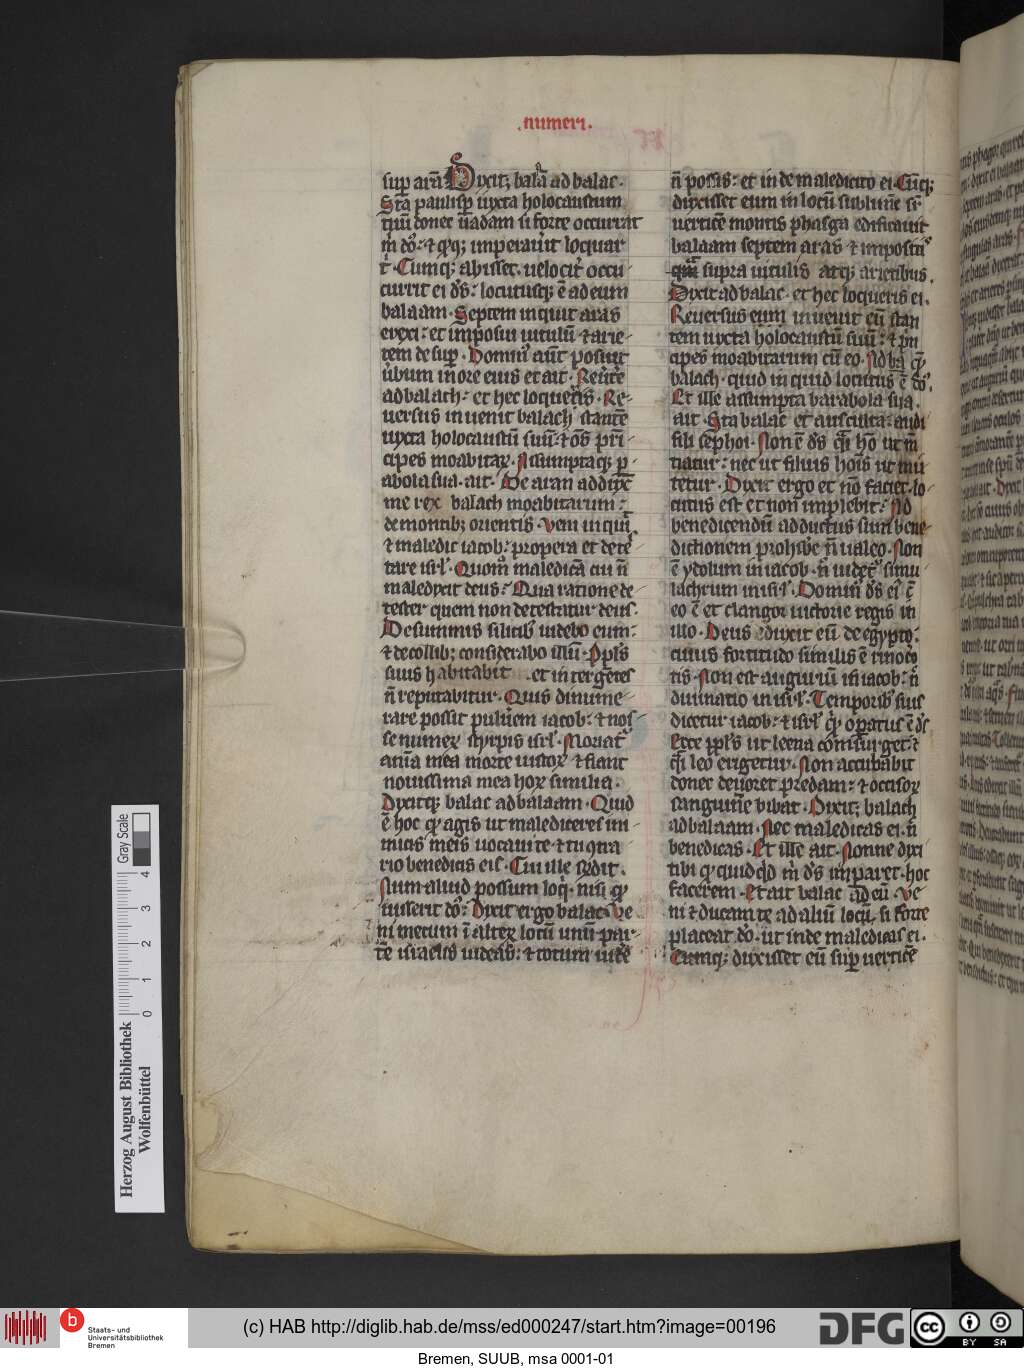 .numeri.
sup arā Dixitq; balāā ad balac.
Sta paulisp iuxta holocaustum
tuū donec uadam si forte occurrat
m̄ dō: ⁊ qͨq; imperauit loquar
t̄. Cumq; abisset. uelocit̄ occu-
currit ei ds̄: locutusq; ē ad eum
balaam. Septem inquit aras
erexi: et imposui uitulū ⁊ arie-
tem desup. Domin̄ aūt posuit
ūbum in ore eius et ait. Reūte
ad balach: et hec loqueris. Re-
uersus inuenit balach stantē
iuxta holocaustū suū: ⁊ os̄ pri-
cipes moabitaꝝ. Assumptaq; p-
abola sua. ait. De aran adduxit
me rex balach moabitarum:
de montib; orientis. Veni inquit
⁊ maledic iacob: propera et dete-
tare isrl̄. Quom̄ maledicā cui n̄
maledixit deus: Qua ratione de-
tester quem non detestatur deus.
De summis silicib; uidebo eum:
⁊ de collib; considerabo illū. Ppl̄s
suus habitabit et in tergetes
n̄ reputabitur. Quis dinume-
rare possit puluerem iacob: ⁊ nos-
se numeꝝ styrpis isrl̄. Moriat̄
anīa mea morte iustoꝝ ⁊ fiant
nouissima mea hoꝝ similia.
Dixitq; balac ad balaam. Quid
ē hoc qͩ agis ut malediceres ini-
micis meis uocaui te. ⁊ tu ꝯtra-
rio benedicis eis. Cui ille rñdit.
Num aliud possum loqͥ. nisi qͩ
iusserit dō: Dixit ergo balac. Ve-
ni mecum ī alteꝝ locū unū par-
tē israelis uideas: ⁊ totum uide
n̄ possis: et inde maledicito ei. Cūq;
dixisset eum in locū sublime sr̄
uerticē montis phasga edificauit
balaam septem aras ⁊ impositi
supra uitulis atq; arietibus.
Dixit ad balac. et hec loqueris ei.
Reuersus eum inuenit eū stan
tem iuxta holocaustū suū: ⁊ pn
cipes moabitarum cū eo. Ad
balach. quid inquid locutus ē dō.
Et ille assumpta barabola sua.
ait. Sta balac et ausculta: audi
fili sephoi. Non ē ds̄ qͣi hō ut m
tiatur: nec ut filius hoīs ut mu
tetur. Dixit ergo et nō faciet. lo-
cutus est et non implebit: Ad
benedicendū adductus sum bene-
dictionem prohibe n̄ ualeo. Non
ē ydolum in iacob. n̄ uidet̄ simu
lachrum in isrl̄. Domin̄ ds̄ ei̓ c̄
eo ē et clangor uictorie regis in
illo. Deus eduxit eū de egypto:
cuius fortitudo similis ē rinoco
tis. Non est auguriū in iacob: n̄
diuinatio in isrl̄. Temporib; suis
dicetur iacob: ⁊ isrl̄ qͩ opatus ē ds̄
Ecce ppl̄s ut leena consurget: ⁊
qͣi leo erigetur. Non accubabit
donec deuoret predam: ⁊ occisoꝝ
sanguinē bibat. Dixitq; balach
ad balaam. Nec maledicas ei. n̄
benedicas. Et ille ait. Nonne dixi
tibi qͩ quidqͥd m̄ ds̄ imparet. hoc
facerem. Et ait balac ad eū. Ve-
ni ⁊ ducam te ad aliū locū, si forte
placeat dō. ut inde maledicas ei.
Cumq; duxisset eū sup uerticē
Gray Scale
0 1 2 3 4
Herzog August Bibliothek
Wolfenbüttel
b
Staats- und
Universitätsbibliothek
Bremen
(c) HAB http://diglib.hab.de/mss/ed000247/start.htm?image=00196
DFG
cc
BY SA
Bremen, SUUB, msa 0001-01